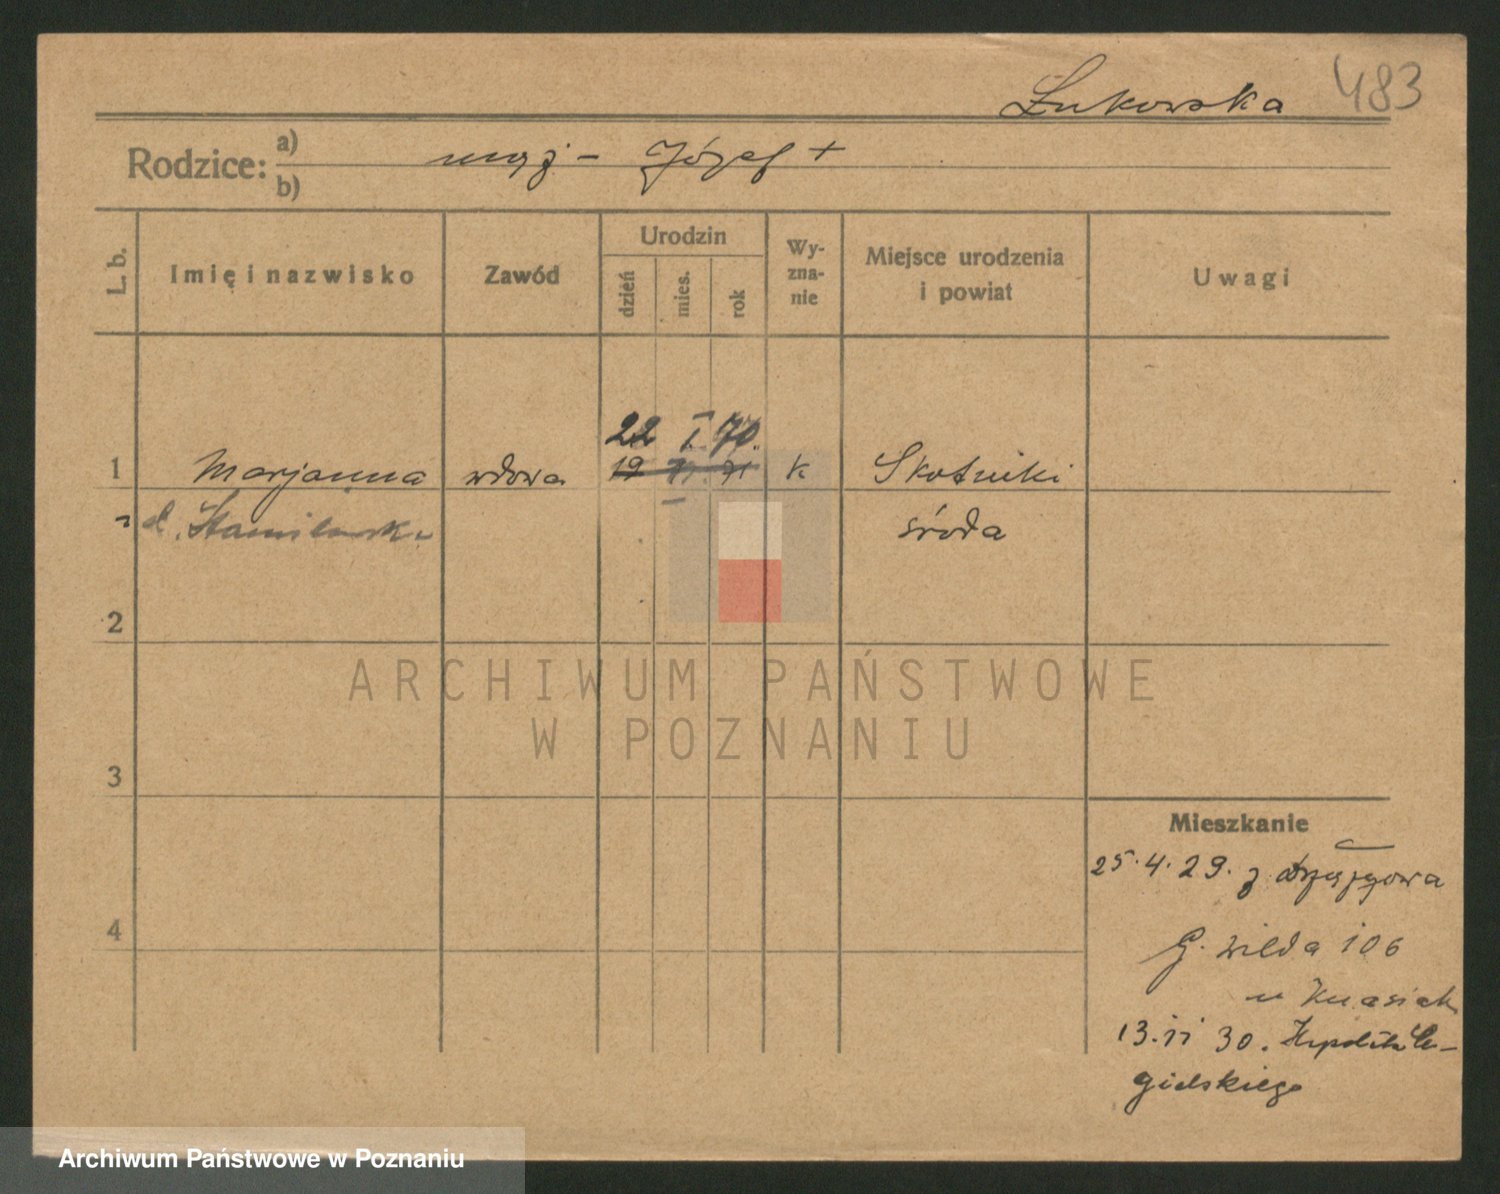 Żukowska 483
Rodzice: a) mąż - Józef +
b)
L. b. Imię i nazwisko Zawód Urodzin dzień mies. rok Wy-zna-nie Miejsce urodzenia i powiat Uwagi
22 I 70.
1 Marjanna wdowa 19 71 k Skotniki
środa
2
ARCHIWUM PAŃSTWOWE
W POZNANIU
3
Mieszkanie
25.4.29. z
4
G. wilda 106
u
13.11 30. Hipolita Ce-
gielskiego
Archiwum Państwowe w Poznaniu